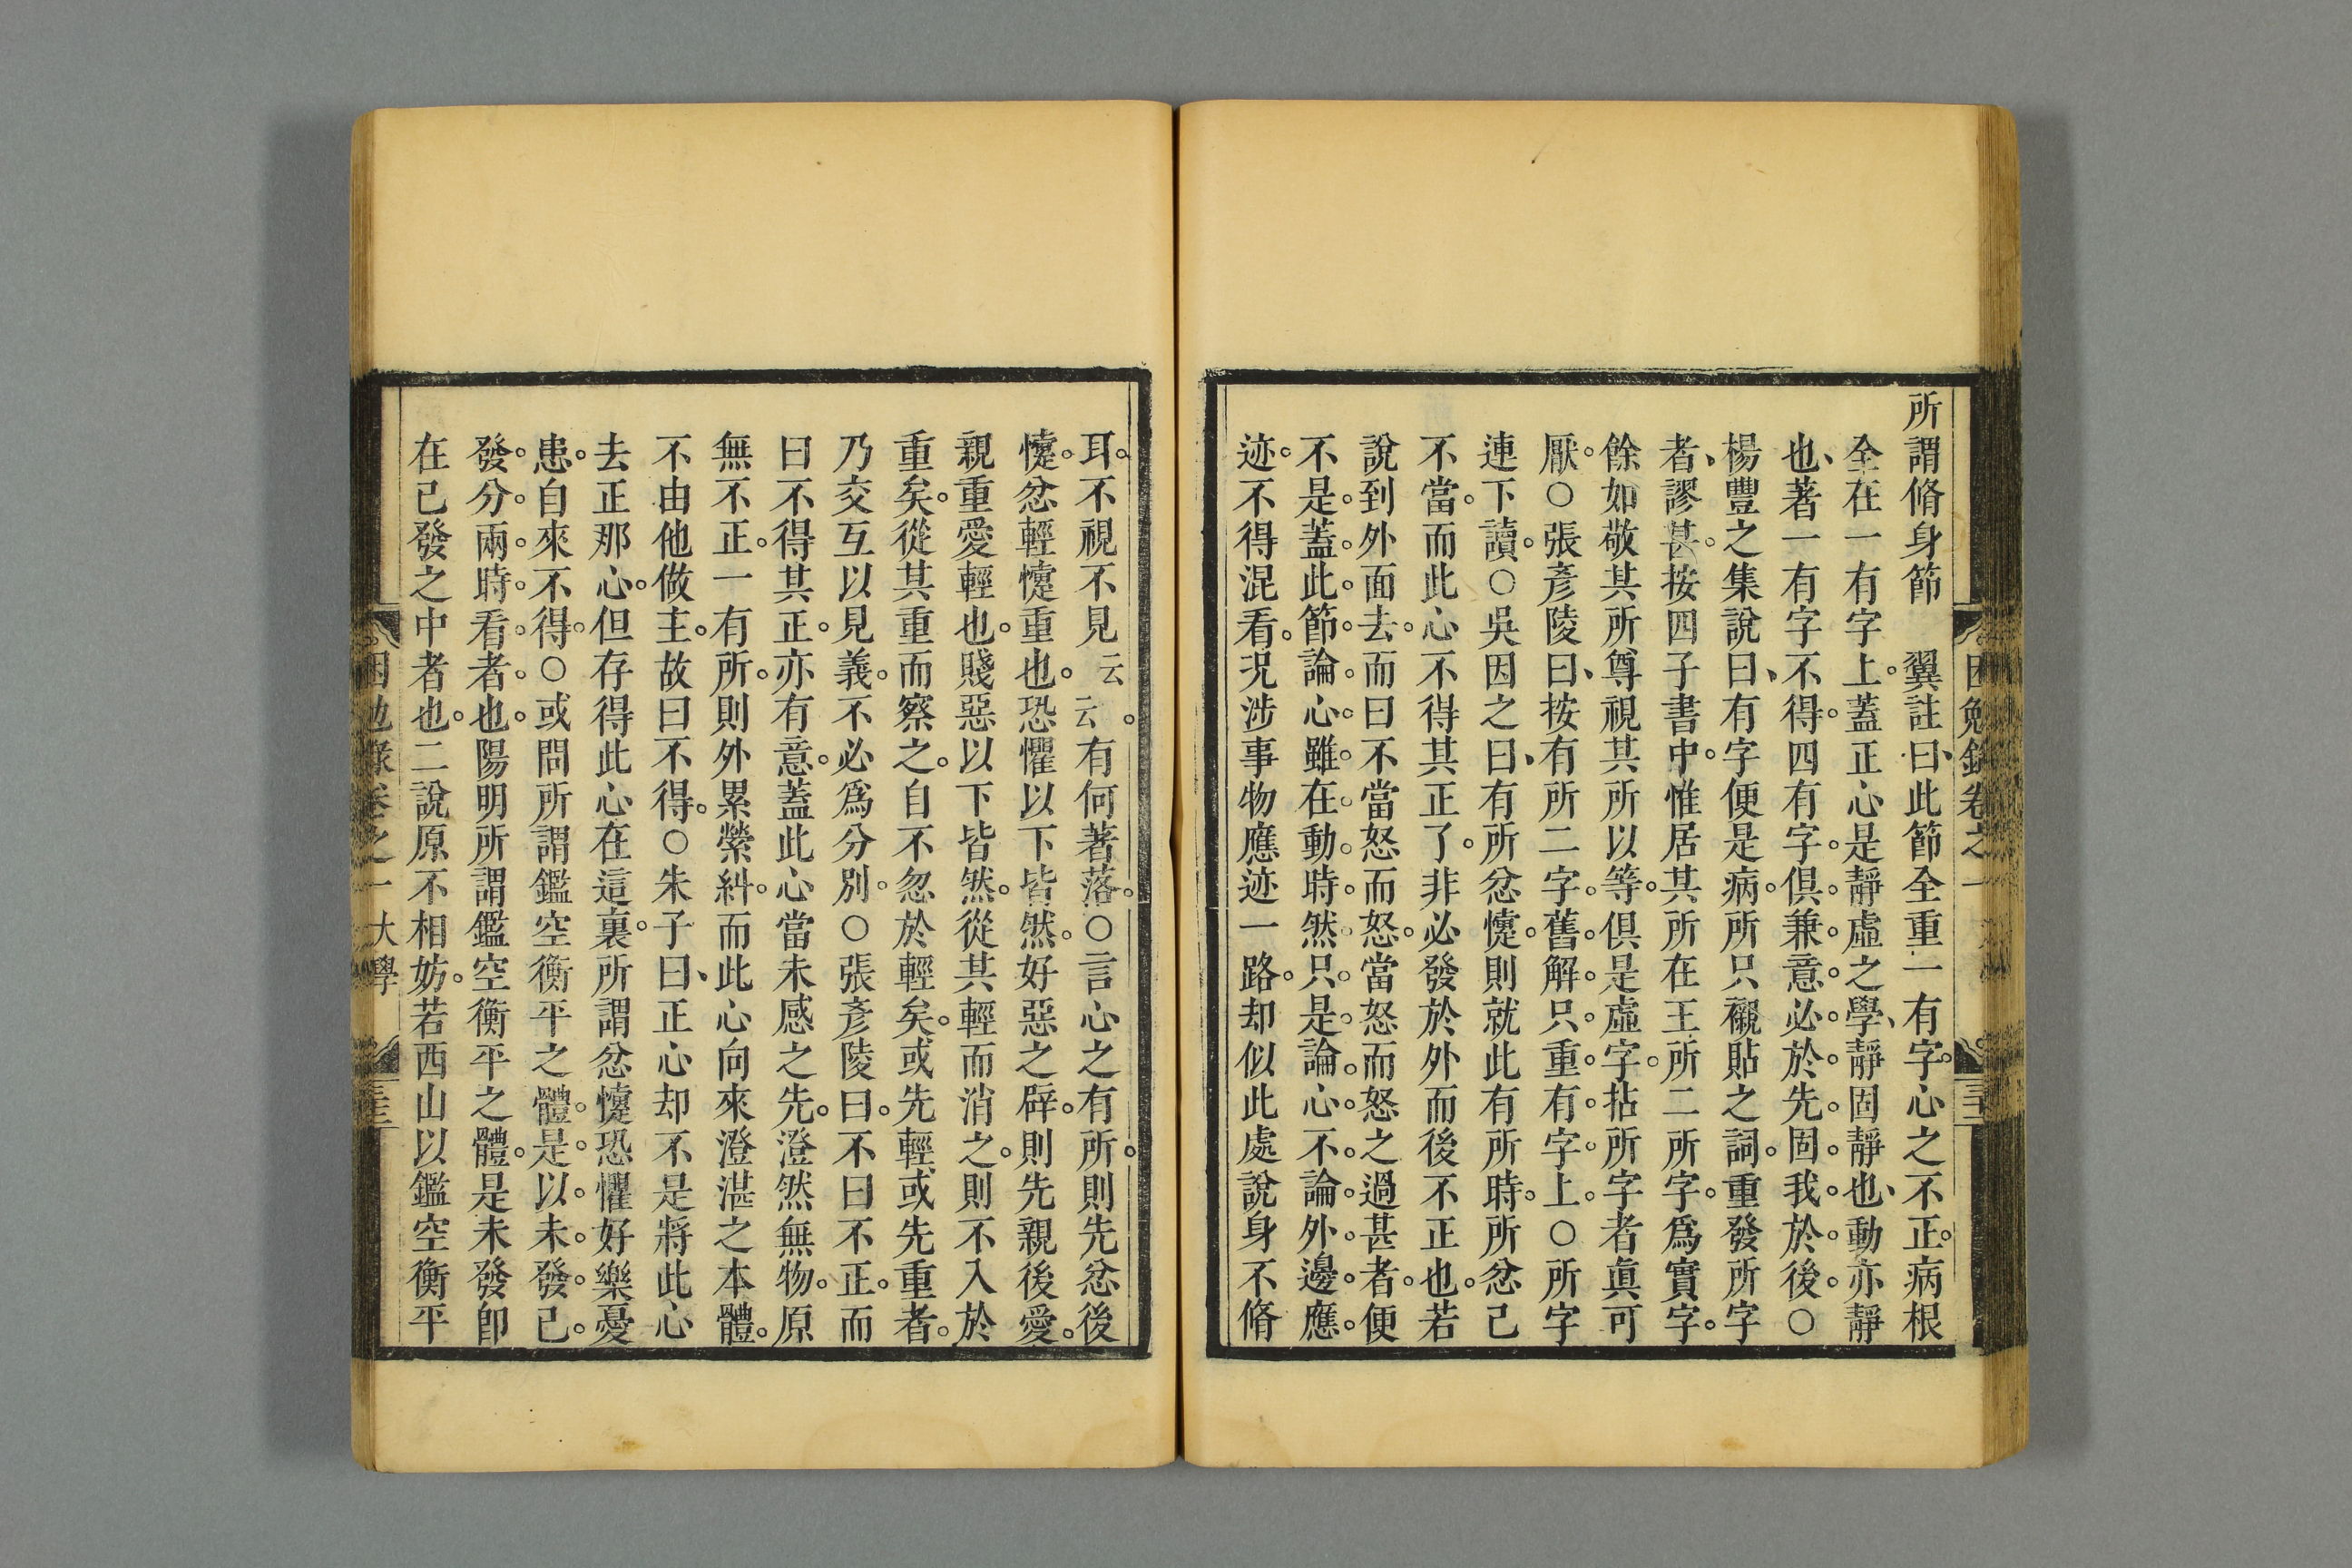 所謂脩身節　翼註曰、此節全重一有字。心之不正。病根
全在一有字上。蓋正心是靜虛之學、靜固靜也、動亦靜
也、著一有字不得。四有字。俱兼。意。必。於。先。固。我。於。後。○
楊豐之集說曰、有字便是病。所只襯貼之詞。重發所字
者、謬甚。按四子書中。惟居其所在王所二所字。爲實字。
餘如敬其所尊視其所以等。俱是虛字。拈所字者眞可
厭。○張彥陵曰、按有所二字。舊。解。只。重。有。字。上。○所字
連下讀。○吳因之曰、有所忿懥。則就此有所時。所忿已
不當。而此心不得其正了。非必發於外而後不正也。若
說到外面去。而曰不當怒而怒。當怒而怒之過甚者。便
不是。蓋。此。節。論。心。雖。在。動。時。然。只。是。論。心。不。論。外。邊。應。
迹。不得混看。况涉事物應迹一路。却似此處說身不脩
困勉錄卷之一
耳。不視不見云云。有何著落。○言心之有所。則先忿後
懥。忿輕懥重也。恐懼以下皆然。好惡之辟。則先親後愛。
親重愛輕也。賤惡以下皆然。從其輕而消之。則不入於
重矣。從其重而察之。自不忽於輕矣。或先輕或先重者。
乃交互以見義。不必爲分別。○張彥陵曰。不曰不正。而
曰不得其正。亦有意。蓋此心當未感之先。澄然無物。原
無不正。一有所。則外累縈糾。而此心向來澄湛之本體。
不由他做主。故曰不得。○朱子曰、正心却不是將此心
去正那心。但存得此心在這裏。所謂忿懥恐懼好樂憂
患。自來不得。○或問所謂鑑空衡平之體。是。以。未。發。已。
發。分。兩。時。看。者。也。陽明所謂鑑空衡平之體。是未發卽
在已發之中者也。二說原不相妨。若西山以鑑空衡平
困勉錄卷之一　大學